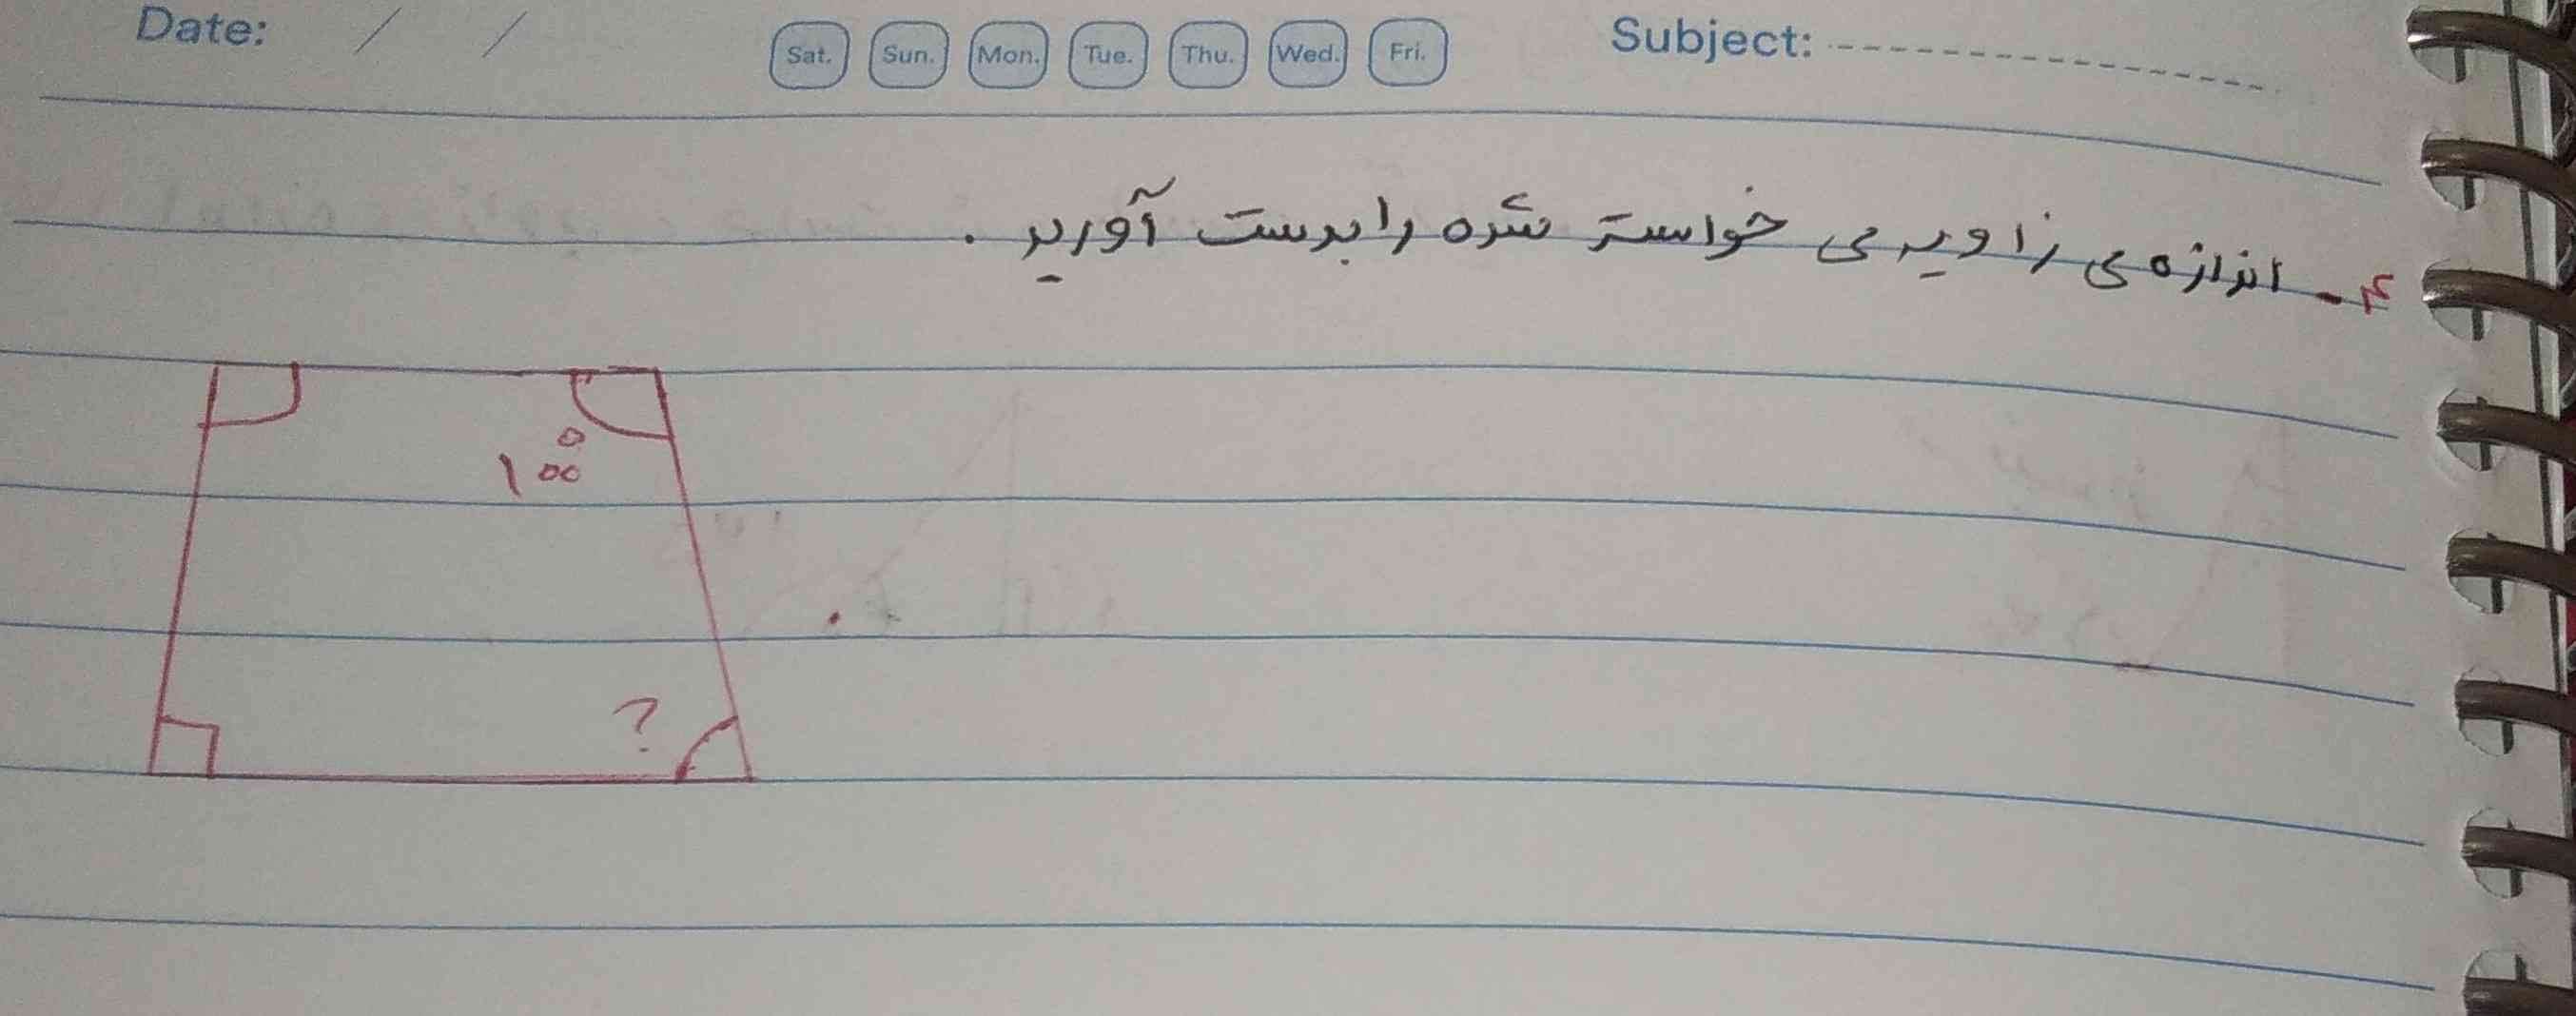 Date: / /
Sat. Sun. Mon. Tue. Thu. Wed. Fri.
Subject:
۴- اندازه ی زاویه ی خواسته شده را بدست آورید .
۱۰۰°
?